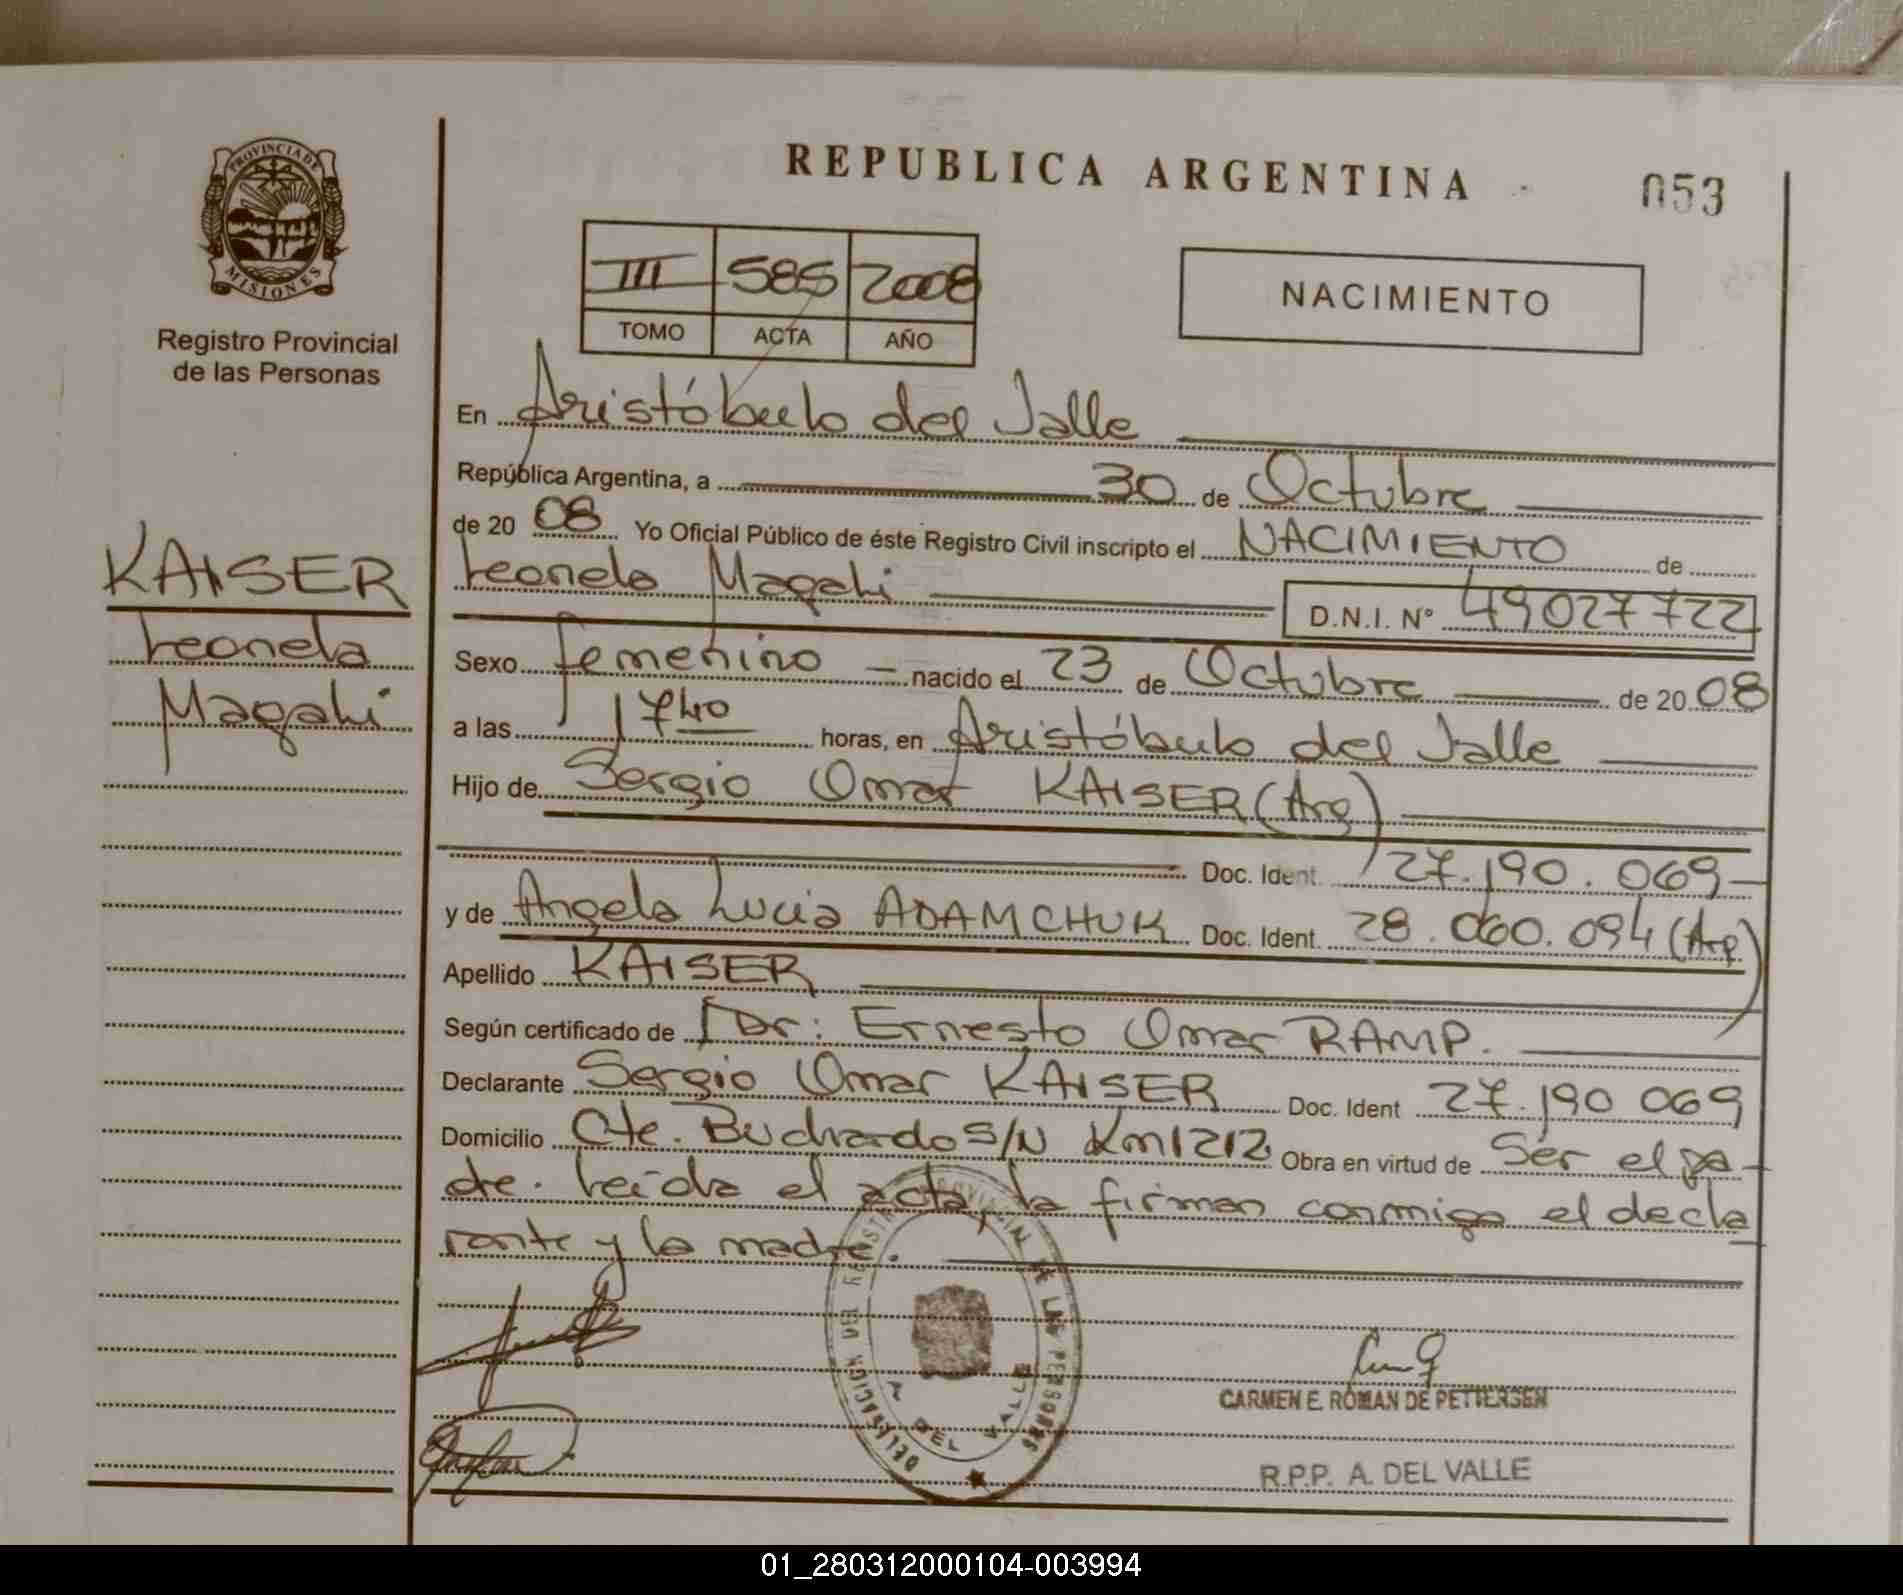 REPUBLICA ARGENTINA
053
PROVINCIA DE
MISIONES
Registro Provincial
de las Personas
III 585 2008
TOMO ACTA AÑO
NACIMIENTO
En Aristóbulo del Valle
República Argentina, a 30 de Octubre
de 20 08 Yo Oficial Público de éste Registro Civil inscripto el NACIMIENTO de
Leonela Magali
D.N.I. Nº 49027722
KAISER
Leonela
Magali
Sexo femenino nacido el 23 de Octubre de 20 08
a las 17 40 horas, en Aristóbulo del Valle
Hijo de Sergio Omar KAISER (Arg)
Doc. Ident. 27.190.069
y de Angela Lucia ADAMCHUK Doc. Ident. 28.060.094 (Arg)
Apellido KAISER
Según certificado de Dr: Ernesto Omar RAMP.
Declarante Sergio Omar KAISER Doc. Ident 27.190 069
Domicilio Cte. Buchardo S/N Km1212 Obra en virtud de Ser el pa-
dre. Leída el acta, la firman conmigo el decla
rante y la madre.
DELEGACION DEL REGISTRO PROVINCIAL DE LAS PERSONAS
A. DEL VALLE
CARMEN E. ROMAN DE PETTERSEN
R.P.P. A. DEL VALLE
01_280312000104-003994